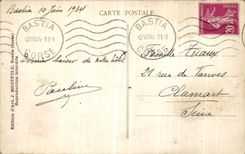 Bastia 10 Juin 1934
CARTE POSTALE
BASTIA
CORSE
BASTIA
CORSE
20
Dernier baiser de notre hôtel
Pauline
Famille Fuaux
21 rue de Vanves
Clamart
Seine
Edition d'art, J. MORETTI
Reproduction interdite